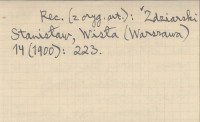 Rec. (z oryg. wt.): Zdziarski
Stanisław, Wisła (Warszawa)
14 (1900): 223.